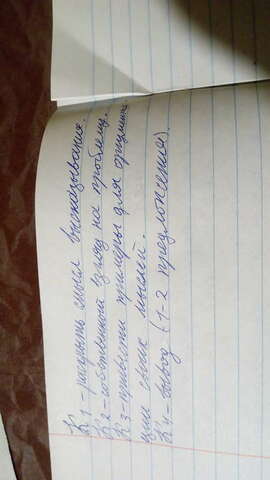 К 1 - раскрыть смысл высказывания.
К 2 - собственный взгляд на проблему.
К 3 - привести примеры для аргумента-
ции своих мыслей.
К 4 - вывод (1-2 предложения).